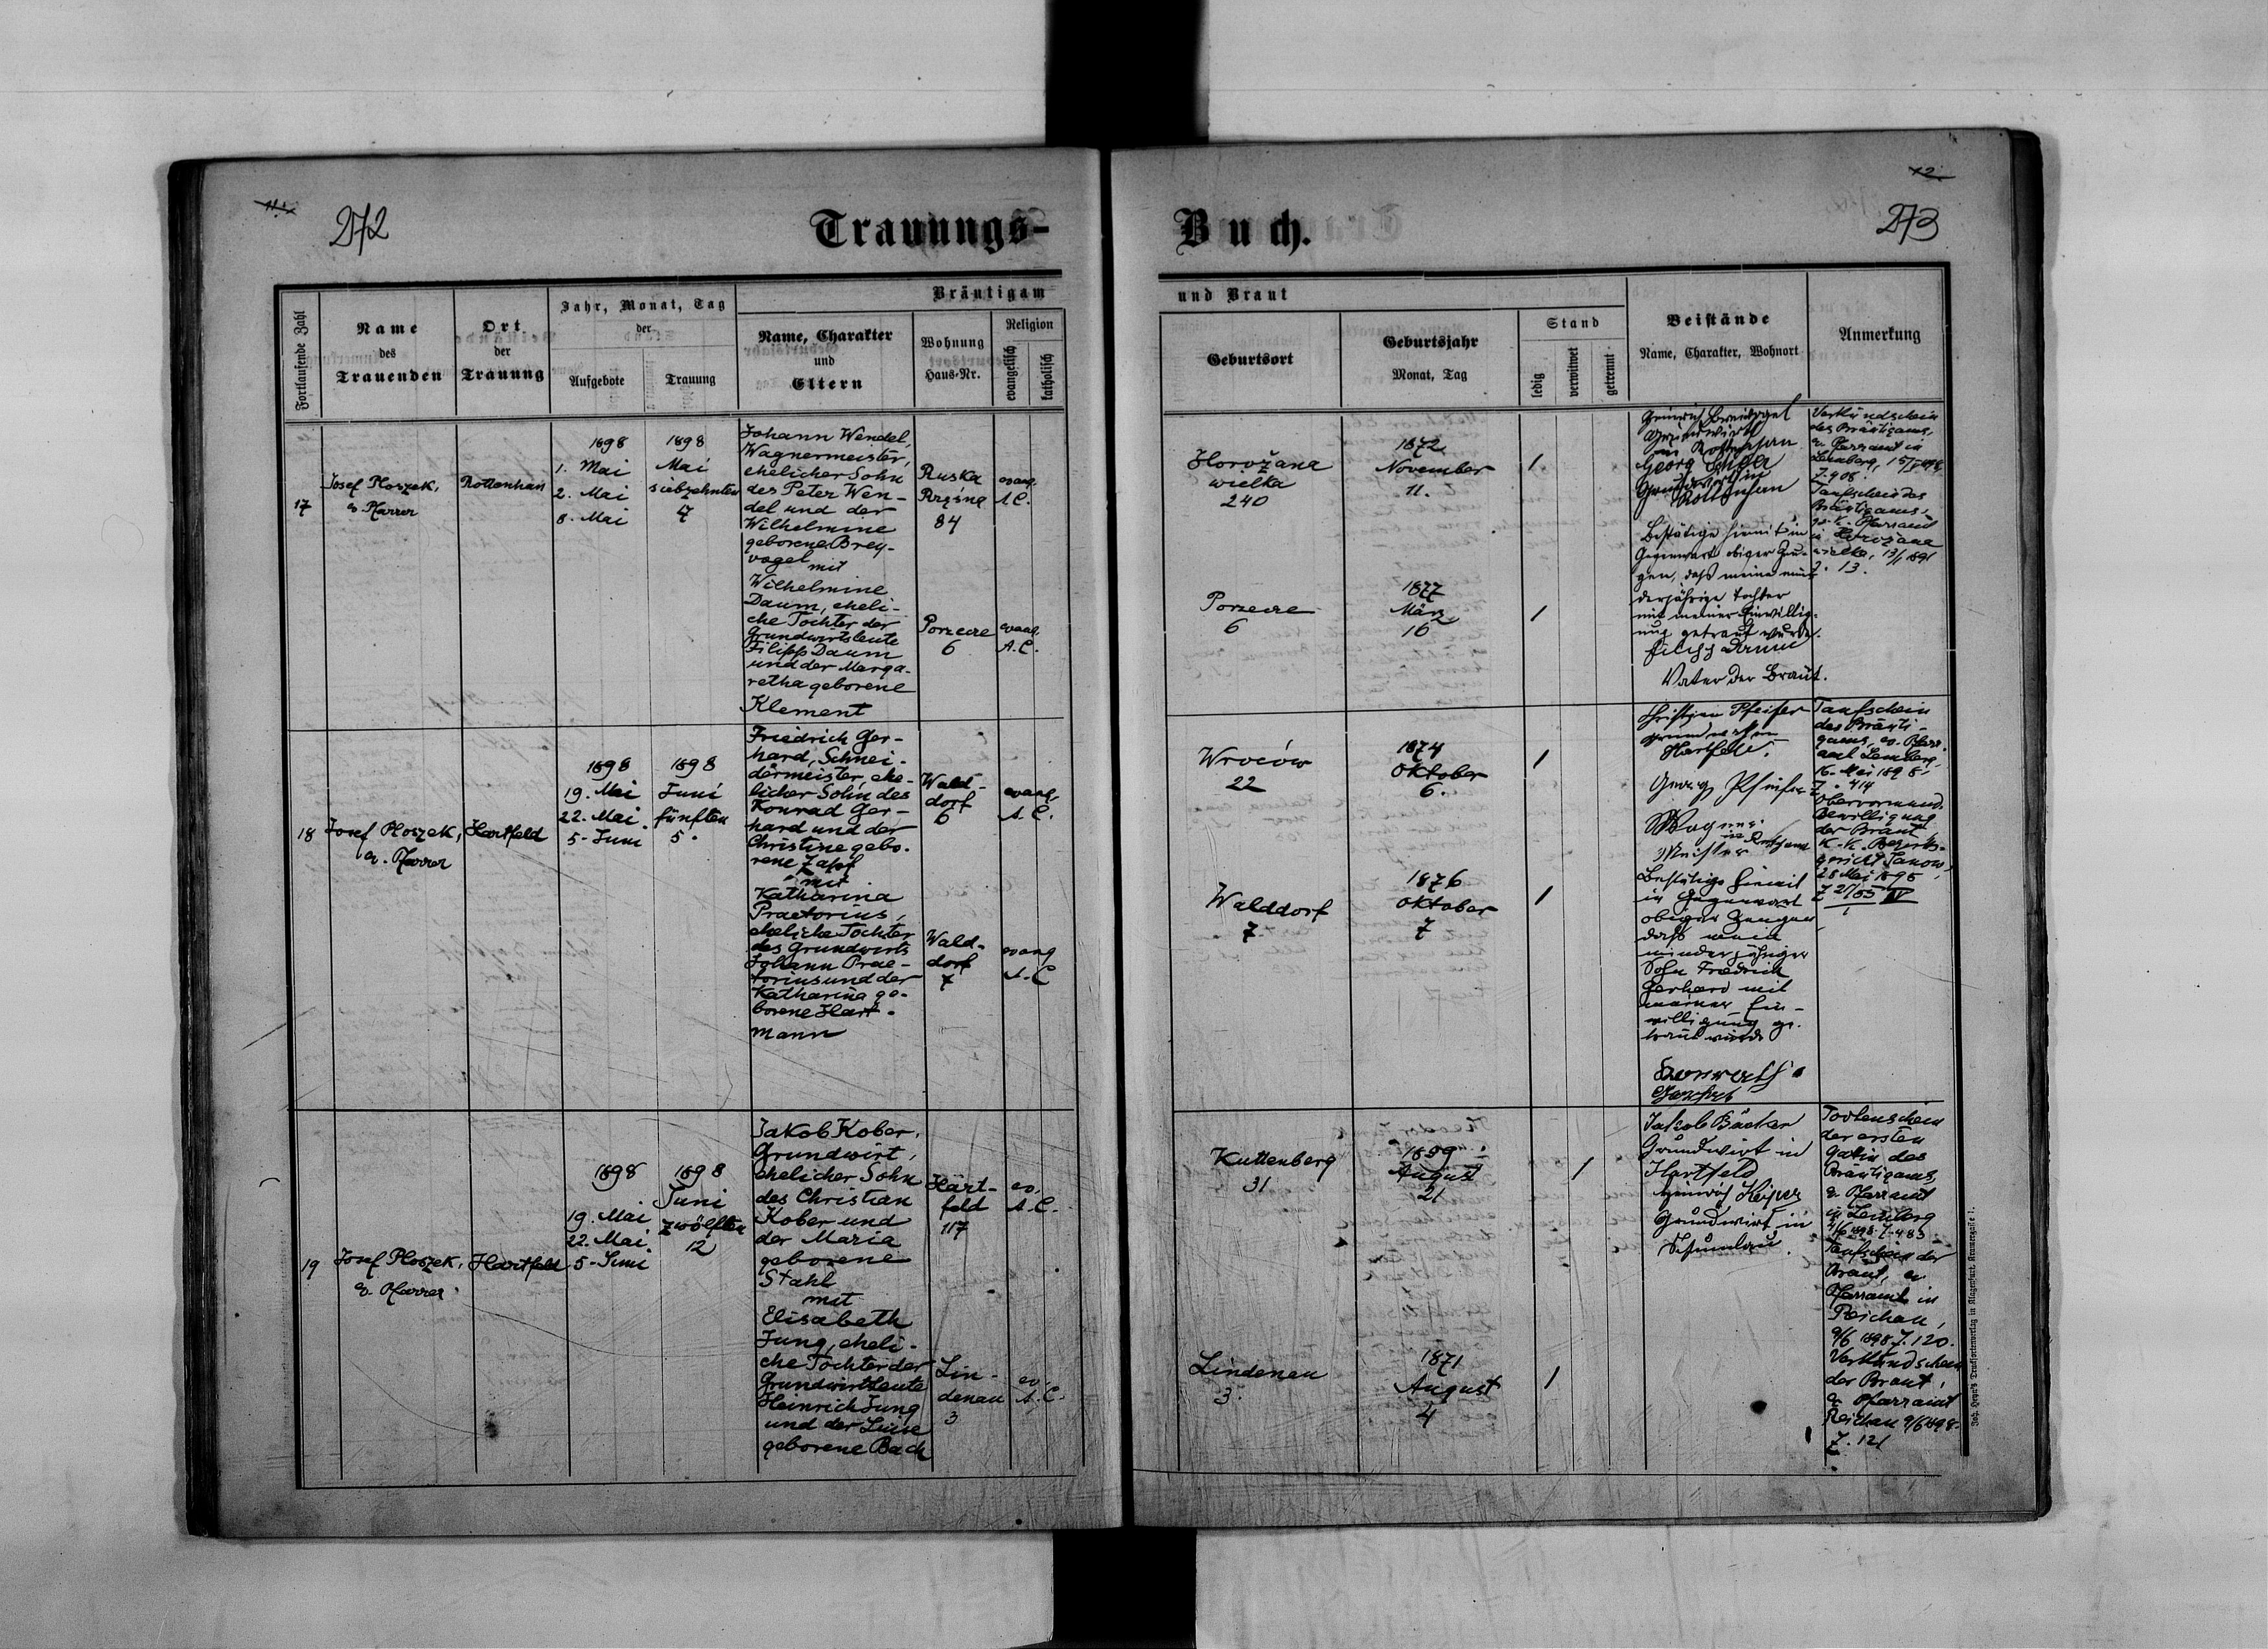 272
Trauungs-
Fortlaufende Zahl
Name
des
Trauenden
Ort
der
Trauung
Jahr, Monat, Tag
der
Aufgebote
Trauung
Bräutigam
Name, Charakter
und
Eltern
Wohnung
Haus-Nr.
Religion
evangelisch
katholisch
17
Josef Ploszek,
ev. Pfarrer
Rottenhan
1898
1. Mai
2. Mai
8. Mai
1898
Mai
siebzehnten
Johann Wendel,
Wagnermeister,
ehelicher Sohn
des Peter Wen-
del und der
Wilhelmine
geborene Brey-
vogel
mit
Wilhelmine
Daum, eheli-
che Tochter der
Grundwirtsleute
Filipp Daum
und der Marga-
retha geborene
Klement
Ruska
84
evang.
A.C.
Porzecze
6
evang.
A.C.
18
Josef Ploszek,
ev. Pfarrer
Hartfeld
1898
19. Mai
22. Mai
5. Juni
1898
Juni
fünften
5.
Friedrich Ger-
hard, Schnei-
dermeister, ehe-
licher Sohn des
Konrad Ger-
hard und der
Christine gebo-
rene Zapf
mit
Katharina
Praetorius,
eheliche Tochter
des Grundwirts
Johann Prae-
torius und der
Katharina ge-
borene Hart-
mann
Wald-
dorf
6
evang.
A.C.
Wald-
dorf
7
evang
A.C
19
Josef Ploszek,
ev. Pfarrer
Hartfeld
1898
19. Mai
22. Mai
5. Juni
1898
Juni
zwölften
12
Jakob Kober,
Grundwirt,
ehelicher Sohn
des Christian
Kober und
der Maria
geborene
Stahl
mit
Elisabeth
Jung, eheli-
che Tochter der
Grundwirtsleute
Heinrich Jung
und der Luise
geborene Bach
Hart-
feld
117
ev.
A.C.
Lin-
denau
3
ev.
A.C.
273
Buch.
und Braut
Geburtsort
Geburtsjahr
Monat, Tag
Stand
ledig
verwitwet
getrennt
Beistände
Name, Charakter, Wohnort
Anmerkung
Horožana
wielka
240
1872
November
11.
Porzecze
6
1877
März
16
Grundwirth
in Rottenhan
Georg
Grundwirth in
Rottenhan
Bestätige hiemit in
Gegenwart obiger Zeu-
gen, daß meine min-
derjährige Tochter
mit meiner Einwillig-
ung getraut wurde.
Filipp Daum
Vater der Braut.
Verkündschein
des Bräutigams,
ev. Pfarramt in
Lemberg,
Taufschein des
Bräutigams,
Pfarramt
in Horožana
wielka,
Z. 13.
Wroców
22
1874
Oktober
6.
Walddorf
7
1876
Oktober
7
Christian Pfeifer
Grundwirth in
Hartfeld.
Georg Pfeifer
Wagner
Meister
Bestätige hiemit
in Gegenwart
obiger Zeugen
daß mein
minderjähriger
Sohn Friedrich
Gerhard mit
meiner Ein-
willigung ge-
traut wurde
Taufschein
des Bräuti-
gams, ev. Pfarr-
amt Lemberg,
Z. 414
Obervormund.
Bewilligung
der Braut
K. K. Bezirks-
gericht Janow,
28 Mai 1898,
Kuttenberg
31
1859
August
21
Lindenau
3.
1871
August
4
Jakob Bäcker
Grundwirt in
Hartfeld
Heinrich Keiper
Grundwirt in
Schumlau.
Todtenschein
der ersten
Gatin des
Bräutigams,
ev. Pfarramt
in Lemberg
Taufschein der
Braut, ev.
Pfarramt in
Reichau,
9/6 1898 Z. 120.
Verkündschein
der Braut,
ev. Pfarramt
Reichau 9/6 1898.
Z. 121